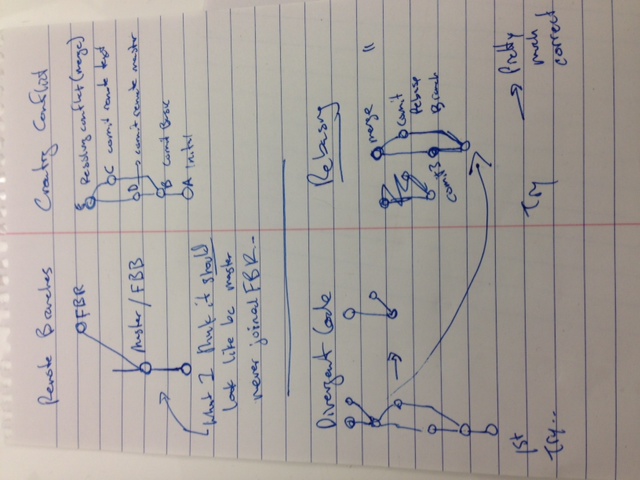 Remote Branches
FBR
Master / FBB
What I think it should
look like bc master
never joined FBR -
Creating Conflict
E
Resolving conflict (merge)
C comit remote test
D → comit remote master
B comit Basic
A Inital
Divergent Code
1st
Try..
Rebasing
merge "
comit
Rebase
Branch
comit 3
Try
→ Pretty
much
correct